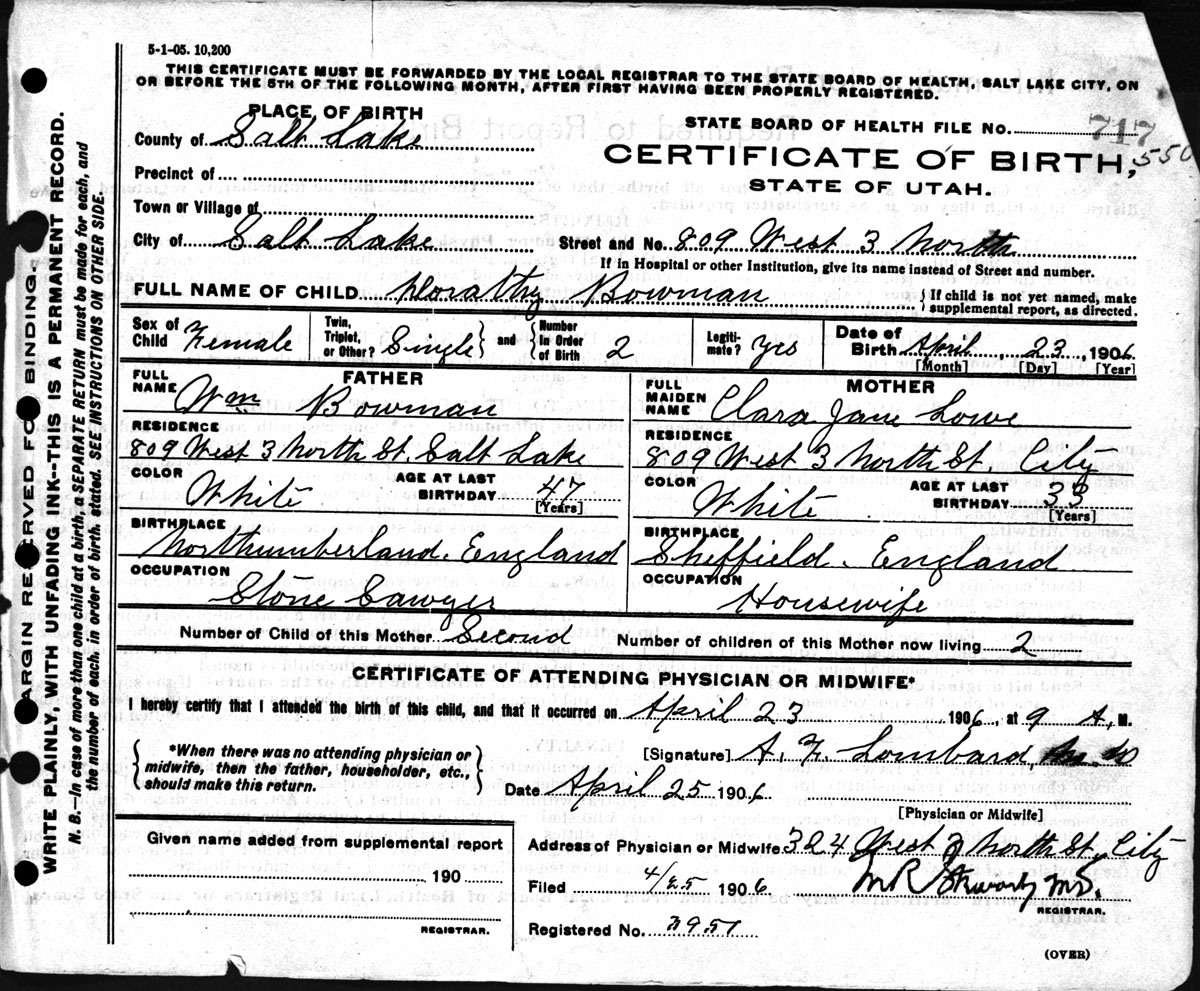 5-1-05. 10,200
THIS CERTIFICATE MUST BE FORWARDED BY THE LOCAL REGISTRAR TO THE STATE BOARD OF HEALTH, SALT LAKE CITY, ON
OR BEFORE THE 5TH OF THE FOLLOWING MONTH, AFTER FIRST HAVING BEEN PROPERLY REGISTERED.
PLACE OF BIRTH
County of Salt Lake
Precinct of
Town or Village of
City of Salt Lake
STATE BOARD OF HEALTH FILE NO. 717
550
CERTIFICATE OF BIRTH,
STATE OF UTAH.
Street and No. 809 West 3 North
If in Hospital or other Institution, give its name instead of Street and number.
FULL NAME OF CHILD Dorathy Bowman { If child is not yet named, make
supplemental report, as directed.
Sex of Child Female
Twin, Triplet, or Other? Single } and { Number In Order of Birth 2
Legitimate? Yes
Date of Birth April, 23, 1906
[Month] [Day] [Year]
FATHER
FULL NAME Wm Bowman
RESIDENCE
809 West 3 North St. Salt Lake
COLOR White AGE AT LAST BIRTHDAY 47
[Years]
BIRTHPLACE
Northumberland. England
OCCUPATION
Stone Sawyer
MOTHER
FULL MAIDEN NAME Clara Jane Lowe
RESIDENCE
809 West 3 North St. City
COLOR White AGE AT LAST BIRTHDAY 33
[Years]
BIRTHPLACE
Sheffield. England
OCCUPATION
Housewife
Number of Child of this Mother Second Number of children of this Mother now living 2
CERTIFICATE OF ATTENDING PHYSICIAN OR MIDWIFE*
I hereby certify that I attended the birth of this child, and that it occurred on April 23 1906, at 9 A, M.
{ *When there was no attending physician or
midwife, then the father, householder, etc.,
should make this return. }
[Signature] A. F. Lombard, M. D
Date April 25 1906
[Physician or Midwife]
Given name added from supplemental report
190
REGISTRAR.
Address of Physician or Midwife 324 West 2 North St, City
Filed 4/25 1906
REGISTRAR.
Registered No. 3951
(OVER)
MARGIN RESERVED FOR BINDING.
WRITE PLAINLY WITH UNFADING INK--THIS IS A PERMANENT RECORD.
N. B.--In case of more than one child at a birth, a SEPARATE RETURN must be made for each, and
the number of each, in order of birth, stated. SEE INSTRUCTIONS ON OTHER SIDE.